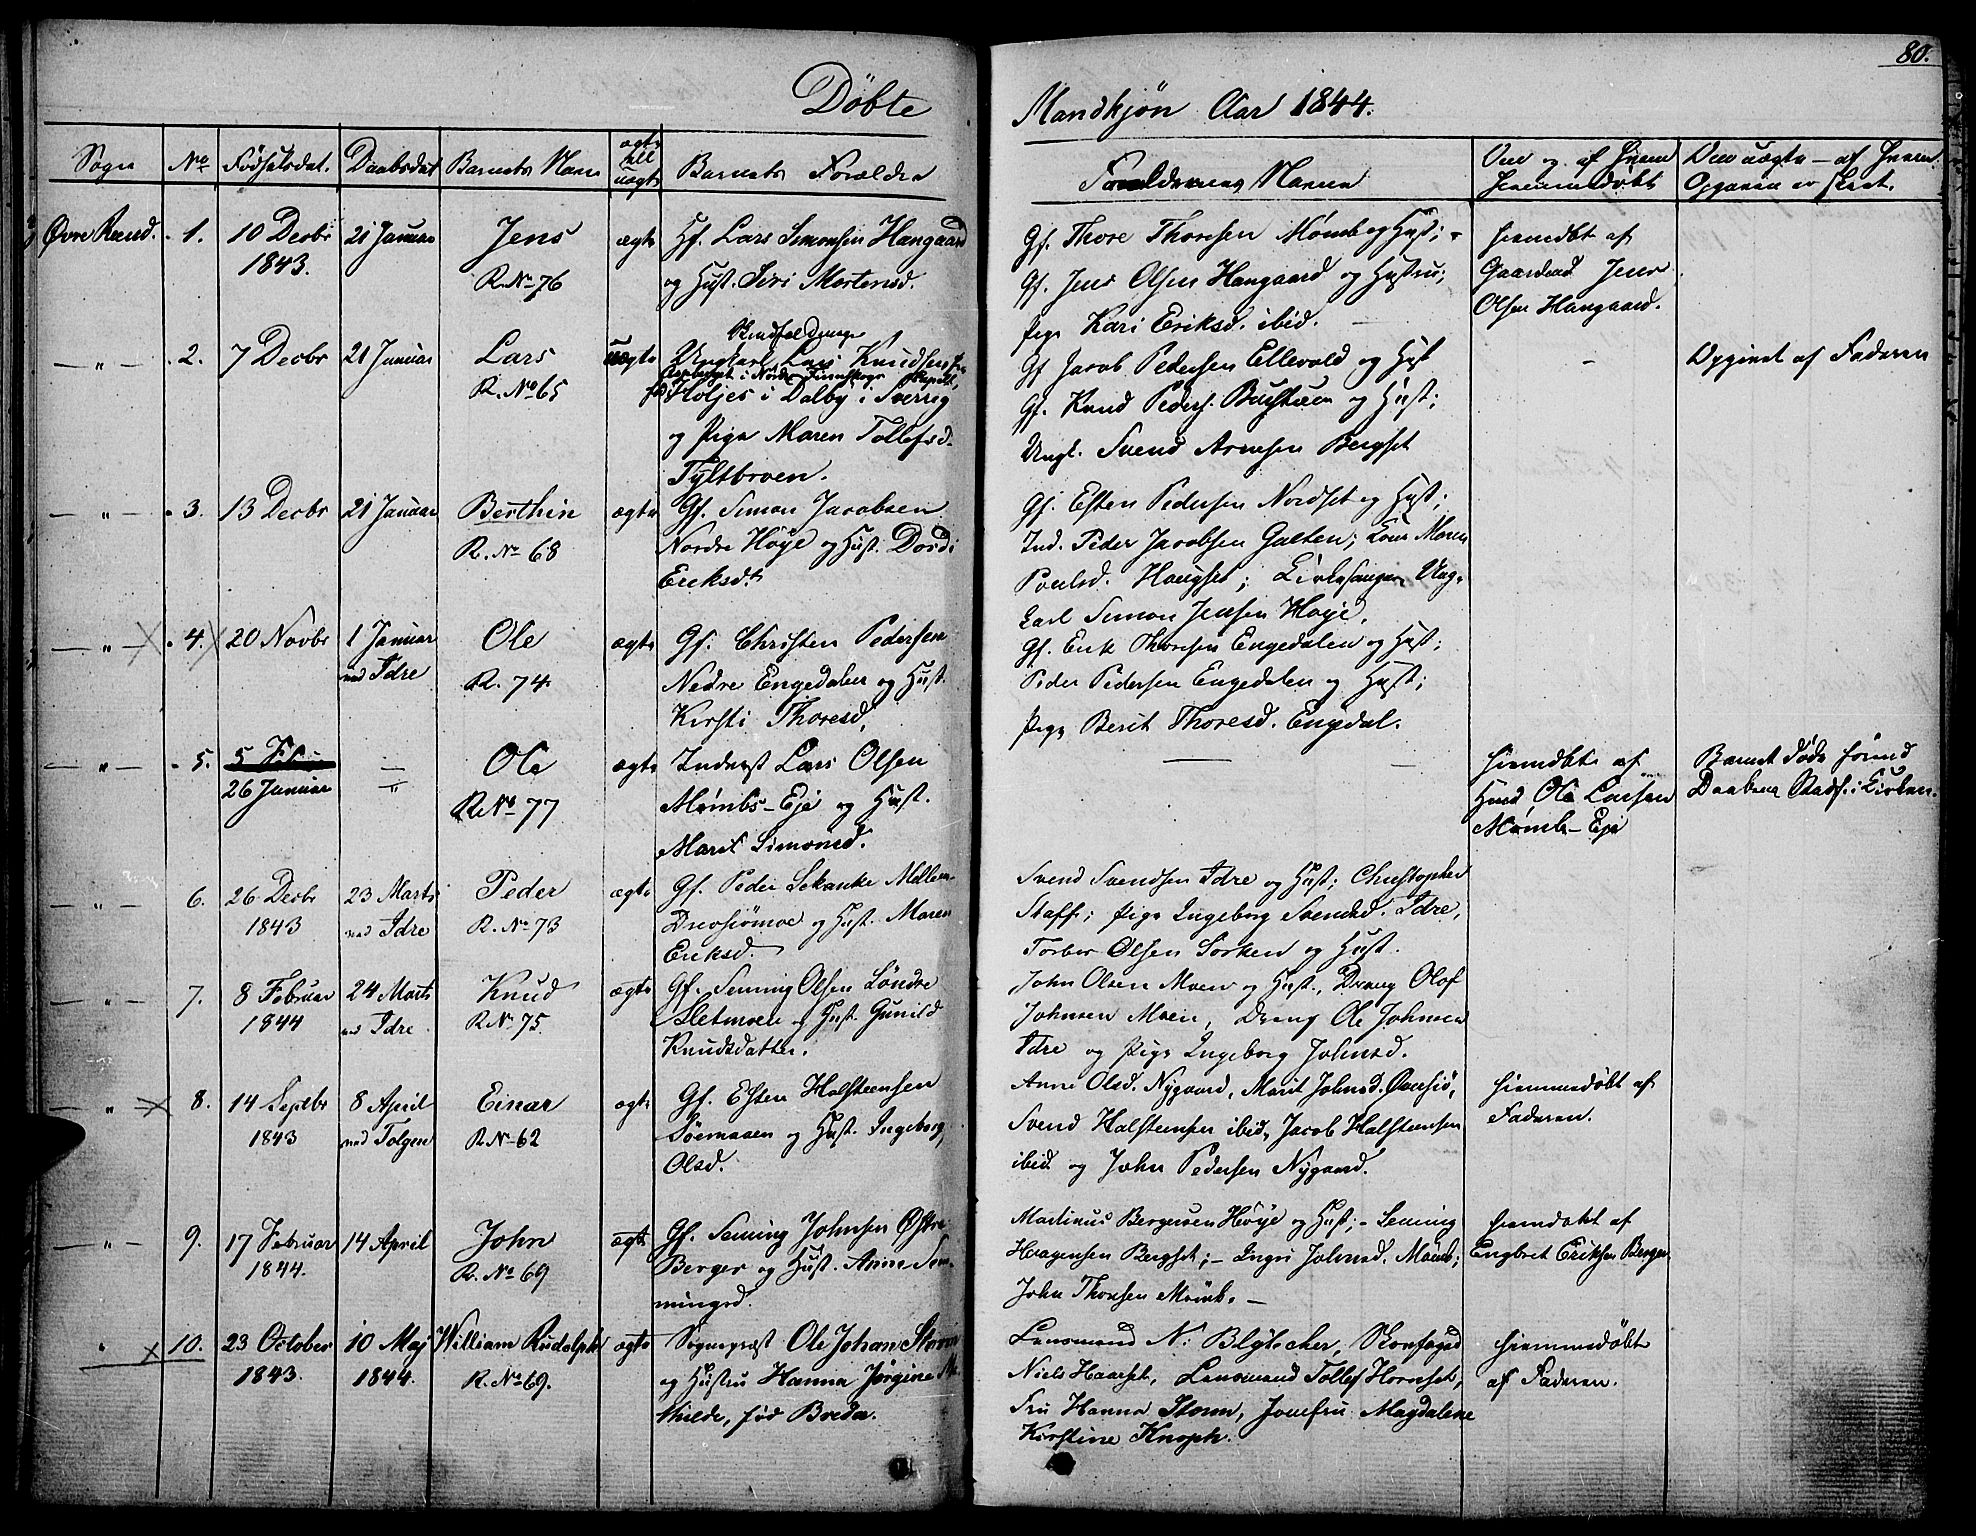 80.
Döbte
Mandkjön Aar 1844.
Sogn No Fødselsdat. Daabsdat Barnets Navn ægte ell uægte Barnets Forældre
Faddernes Navne Om og af hvem hjemmedøbt Om uægte — af hvem Opgaven er skeet.
Øvre Rend. 1. 10 Decbr 1843. 21 Januar Jens R. No 76 ægte Gf. Lars Simonsen Haugaard
og Hust. Siri Mortensd.
Gf. Thore Thoresen Mømb og Hust;
Gf. Jens Olsen Haugaard og Hustru;
Pige Kari Eriksd. ibid.
hjemdbt af
Gaardmd Jens
Olsen Haugaard.
— " — 2. 7 Decbr 21 Januar Lars R. No 65 uægte
Ungkarl Lars Knudsen
Holjes i Dalby i Sverrig
og Pige Maren Tollefsd.
Tyltbroen.
Gf. Jacob Pedersen Ellevold og Hust
Gf. Knud Peders. Burstuen og Hust;
Ungk. Svend Arnesen Bergset
Opgivet af Faderen
— " — 3. 13 Decbr 21 Januar Berthin R. No 68 ægte Gf. Simon Jacobsen
Nordre Høye og Hust. Dordi
Eriksdt
Gf. Esten Pedersen Nordset og Hust;
Ind. Peder Jacobsen Galten; Kone Maren
Poulsd. Haugset; Kirkesanger Ung-
karl Simon Jensen Høye.
— " — 4. 20 Novbr 1 Januar ved Idre Ole R. 74 ægte Gf. Christen Pedersen
Nedre Engedalen og Hust.
Kirsti Thoresd.
Gf. Erik Thoresen Engedalen og Hust;
Peder Pedersen Engedalen og Hust;
Pige Berit Thoresd. Engedal.
— " — 5. 26 Januar — " Ole R. No 77 ægte Inderst Lars Olsen
Mømbs-Eje og Hust.
Marit Simonsd.
hjemdbt af
Hmd Ole Larsen
Mømb-Eje
Barnet døde førend
Daabens Stadf. i Kirken.
— " — 6. 26 Decbr 1843 23 Marts ved Idre Peder R. No 73 ægte Gf. Peder Sekanke Mellem-
Drevsjømoe og Hust. Maren
Eriksd.
Svend Svendsen Idre og Hust; Christopher
Staff; Pige Ingeborg Svendsd. Idre,
Torber Olsen Sorken og Hust.
— " — 7. 8 Februar 1844 24 Marts ved Idre Knud R. No 75. ægte Gf. Seming Olsen Søndre
Sletmoen og Hust. Gunild
Knudsdatter.
John Olsen Moen og Hust., Dreng Olof
Johnsen Moen, Dreng Ole Johnsen
Idre og Pige Ingeborg Johnsd.
— " — 8. 14 Septbr 1843 8 April ved Tolgen Einar R. No 62 ægte Gf. Esten Halsteensen
Sømaaen og Hust. Ingeborg
Olsd.
Anne Olsd. Nygaard, Marit Johnsd. Øversjø,
Svend Halsteensen ibid, Jacob Halsteensen
ibid og John Pedersen Nygaard.
hjemmedøbt af
Faderen.
— " — 9. 17 Februar 1844. 14 April John R. No 69 ægte Gf. Seming Johnsen Østre
Berger og Hust. Anne Sem-
mingsd.
Martinus Bergersen Høye og Hust; — Seming
Haagensen Bergset; — Ingri Johnsd. Mømb;
John Thoresen Mømb. —
hjemdøbt af
Engbret Eriksen Berger.
" 10. 23 October 1843. 10 Maj 1844. William Rudolph R. No 69. ægte Sognepræst Ole Johan Storm
og Hustru Hanna Jørgine
Milde, født Breda.
Lensmand N. Blytscher, Skovfoged
Niels Haarset, Lensmand Tollef Hornset,
Fru Hanna Storm, Jomfru Magdalene
Kirstine Knoph.
hjemmedøbt
af Faderen.